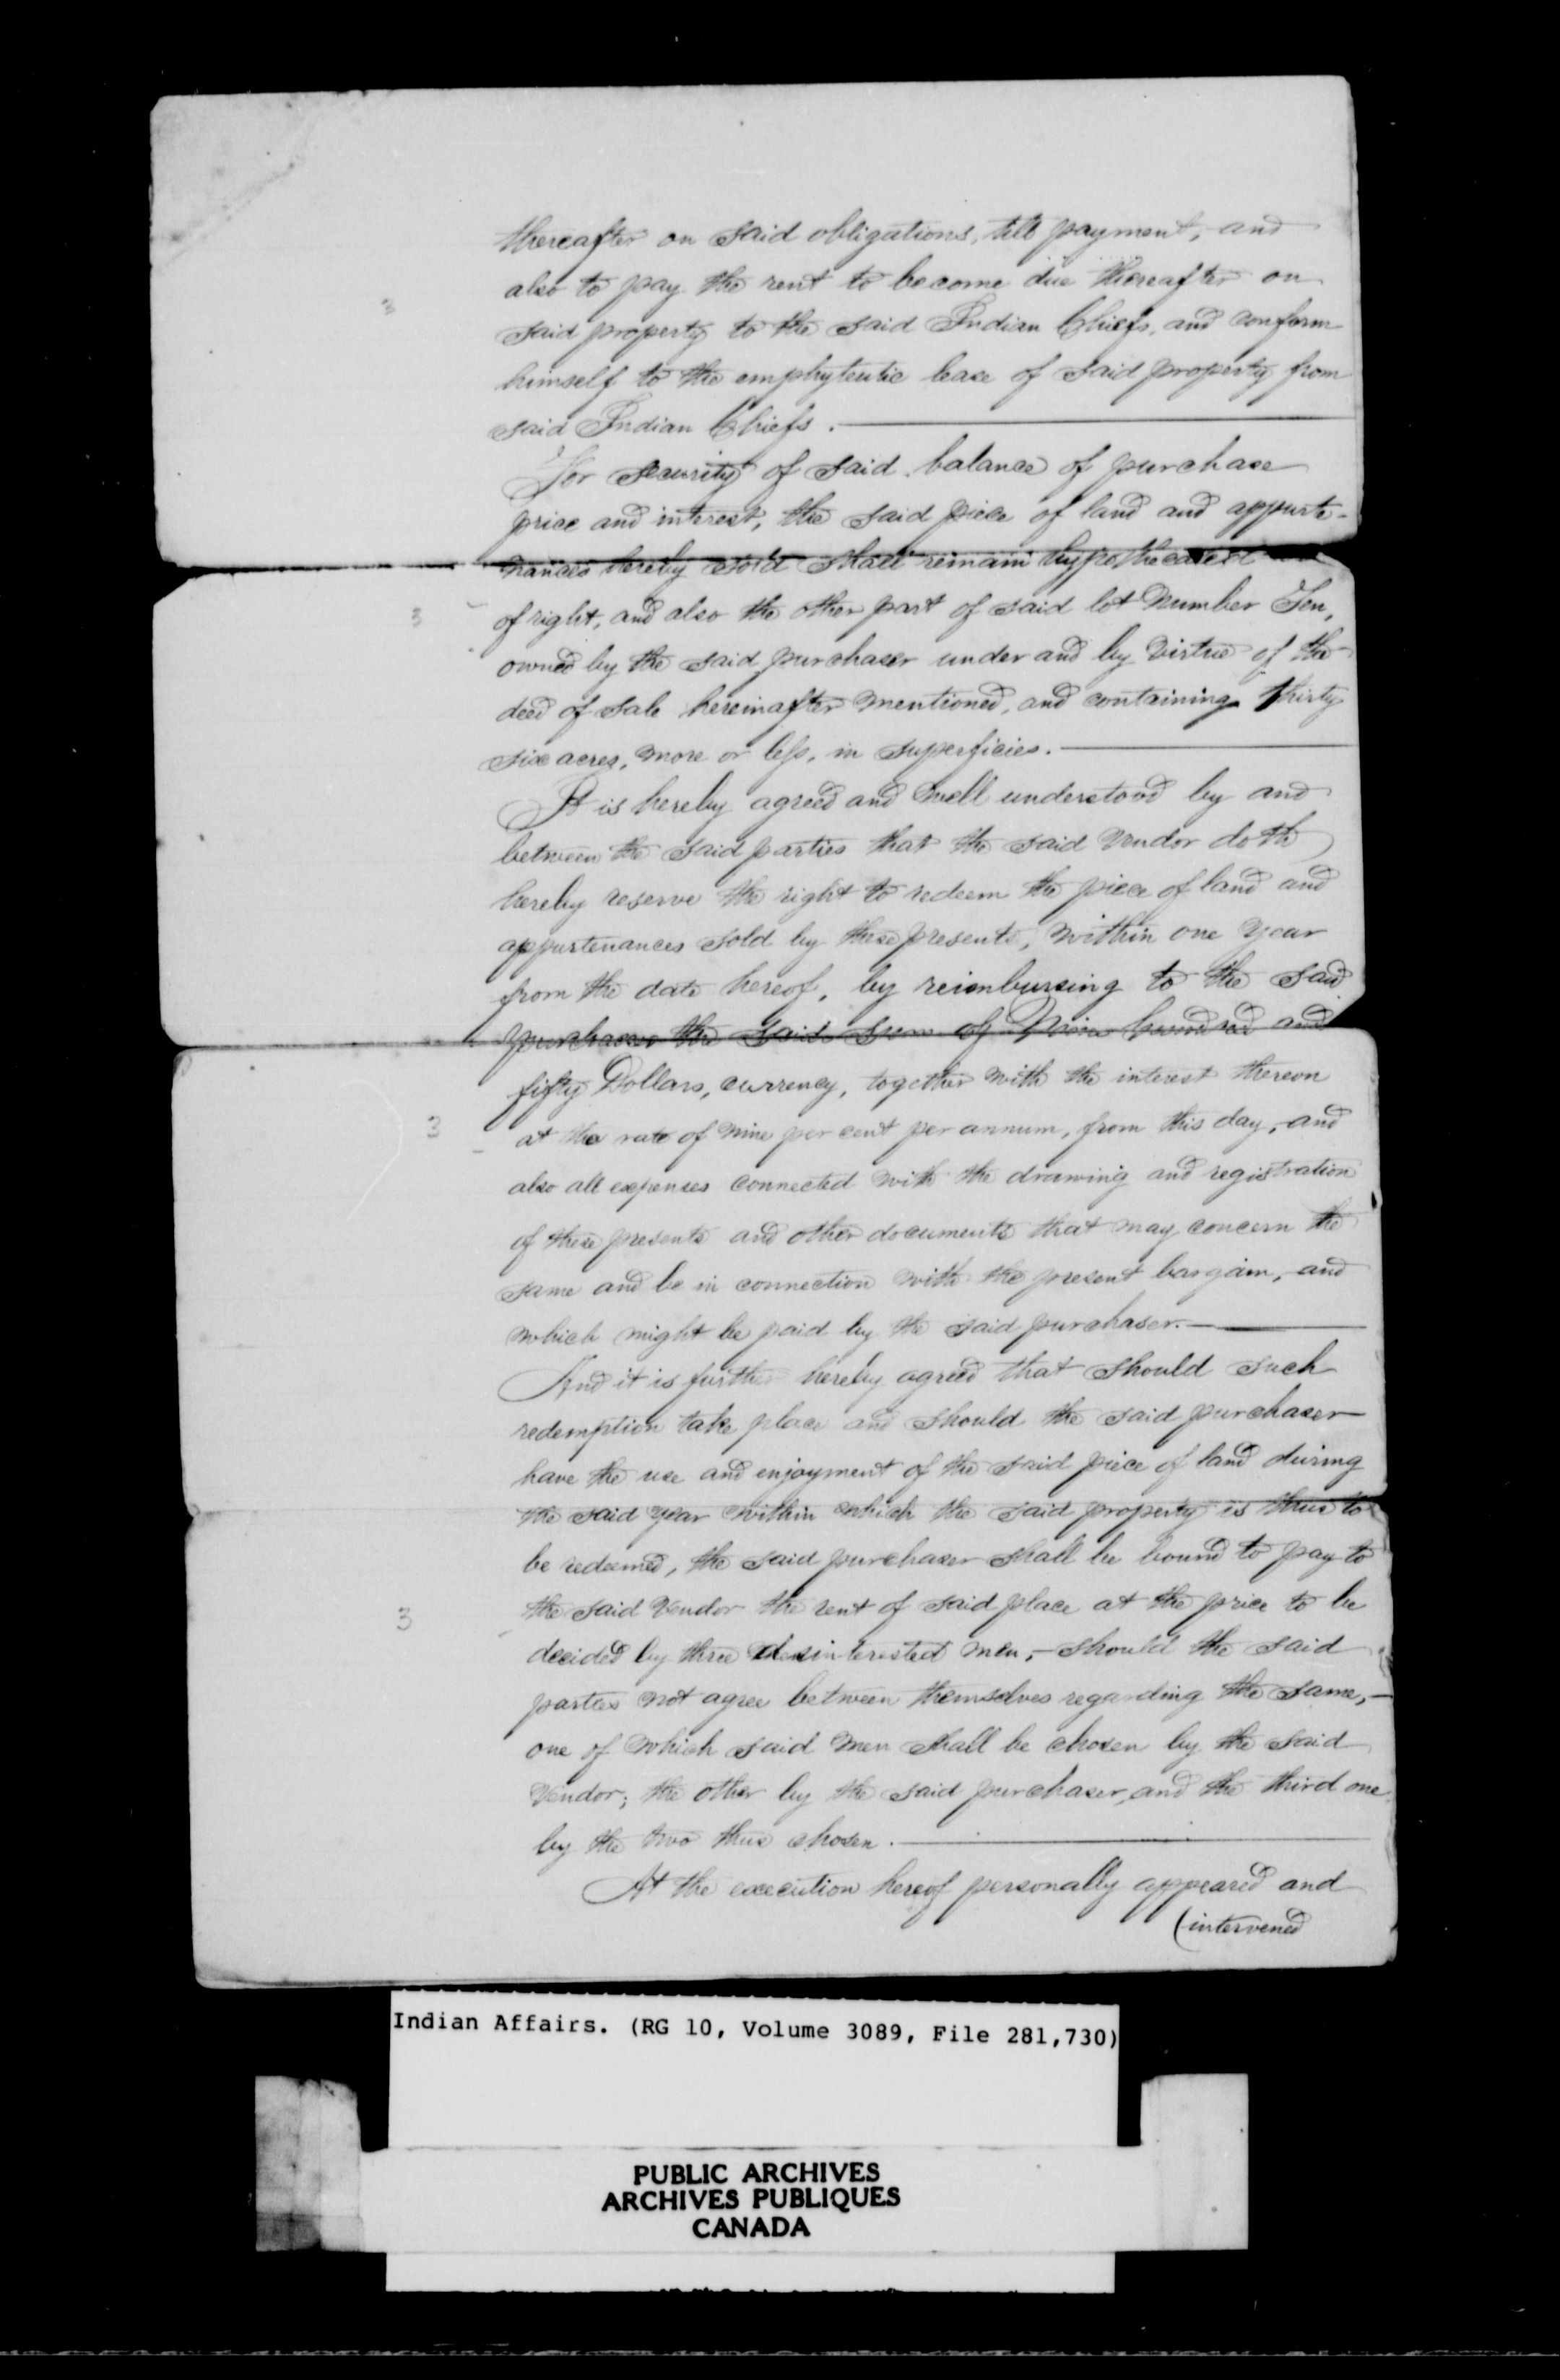 thereafter on said obligations, till payment, and
also to pay the rent to become due thereafter on
3
said property to the said Indian Chiefs, and conform
himself to the emphyteutic lease of said property from
said Indian Chiefs.
For security of said balance of purchase
price and interest, the said piece of land and appurte-
nances hereby sold shall remain hypothecated
3
of right, and also the other part of said lot Number Ten,
owned by the said purchaser under and by virtue of the
deed of sale hereinafter mentioned, and containing thirty
six acres, more or less, in superficies.
It is hereby agreed and well understood by and
between the said parties that the said Vendor doth
hereby reserve the right to redeem the piece of land and
appurtenances sold by these presents, within one year
from the date hereof, by reimbursing to the said
purchaser the said sum of Nine hundred and
fifty Dollars, currency, together with the interest thereon
3
at the rate of nine per cent per annum, from this day, and
also all expenses connected with the drawing and registration
of these presents and other documents that may concern the
same and be in connection with the present bargain, and
which might be paid by the said purchaser.
And it is further hereby agreed that should such
redemption take place and should the said purchaser
have the use and enjoyment of the said piece of land during
the said year within which the said property is thus to
be redeemed, the said purchaser shall be bound to pay to
3
the said Vendor the rent of said place at the price to be
decided by three desinterested men, – should the said
parties not agree between themselves regarding the same, –
one of which said men shall be chosen by the said
Vendor; the other by the said purchaser, and the third one
by the two thus chosen.
At the execution hereof personally appeared and
(intervened
Indian Affairs. (RG 10, Volume 3089, File 281,730)
PUBLIC ARCHIVES
ARCHIVES PUBLIQUES
CANADA